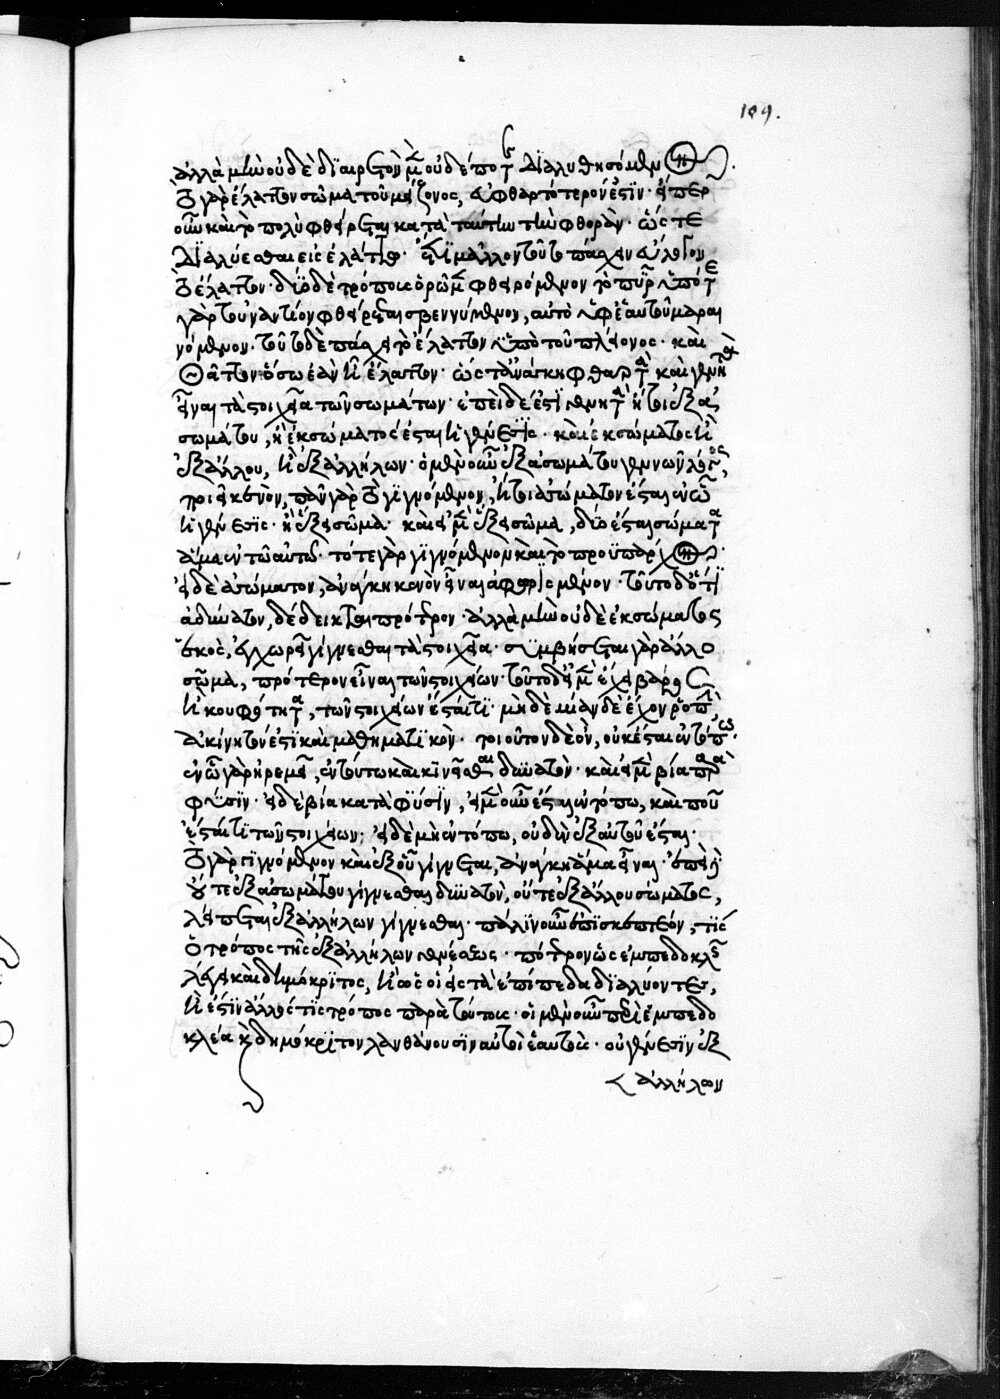 ἀλλὰ μὴν οὐδὲ διαιρετὸν μὲν οὐδέποτε διαλυθησόμενον εἶναι.
τὸ γὰρ ἔλαττον σῶμα τοῦ μείζονος, εὐφθαρτότερόν ἐστιν· εἴπερ
οὖν καὶ τὸ πολὺ φθείρεται κατὰ ταύτην τὴν φθορὰν· ὥστε
διαλύεσθαι εἰς ἐλάττω· ἔτι μᾶλλον τοῦτο πάσχειν εὔλογον
τὸ ἔλαττον· δύο δὲ τρόπους ὁρῶμεν φθειρόμενον τὸ πῦρ· ὑπό τε
γὰρ τοῦ ἐναντίου φθείρεται σβεννύμενον, αὐτὸ ὑφ' ἑαυτοῦ μαραι
νόμενον· τοῦτο δὲ πάσχει τὸ ἔλαττον ὑπὸ τοῦ πλείονος· καὶ
θᾶττον ὅσῳ ἐὰν ἦ ἔλαττον· ὥστ' ἀνάγκη φθαρτὰ καὶ γενητὰ
εἶναι τὰ στοιχεῖα τῶν σωμάτων· ἐπεὶ δέ ἐστι γενητὰ ἤτοι ἐξ ἀ
σωμάτου, ἢ ἐκ σώματος ἔσται ἡ γένεσις· καὶ ἐκ σώματος ἢ
ἐξ ἄλλου, ἢ ἐξ ἀλλήλων· ὁ μὲν οὖν ἐξ ἀσωμάτου γεννῶν λόγος,
ποιεῖ κενὸν, πᾶν γὰρ τὸ γιγνόμενον, ἤτοι ἀσώματον ἔσται ἐν ᾧ
ἡ γένεσις· ἢ ἕξει σῶμα· καὶ εἰ μὲν ἕξει σῶμα, δύο ἔσται σώματα
ἅμα ἐν τῷ αὐτῷ· τό τε γὰρ γιγνόμενον καὶ τὸ προϋπάρχον.
εἰ δὲ ἀσώματον, ἀνάγκη κενὸν εἶναι ἀφωρισμένον· τοῦτο δ' ὅτι
ἀδύνατον, δέδεικται πρότερον· ἀλλὰ μὴν οὐδὲ ἐκ σώματος
τινὸς, ἐγχωρεῖ γίγνεσθαι τὰ στοιχεῖα· συμβήσεται γὰρ ἄλλο
σῶμα, πρότερον εἶναι τῶν στοιχείων· τοῦτο δ' εἰ μὲν ἔχει βάρος
ἢ κουφότητα, τῶν στοιχείων ἔσται τι· μηδεμίαν δὲ ἔχον ῥοπὴν
ἀκίνητόν ἐστι καὶ μαθηματικὸν· τοιοῦτον δὲ ὂν, οὐκ ἔσται ἐν τόπω.
ἐν ᾧ γὰρ ἠρεμεῖ, ἐν τούτω καὶ κινεῖσθαι δυνατὸν· καὶ εἰ μὲν βία παρὰ
φύσιν· εἰ δὲ μὴ βία κατὰ φύσιν, εἰ μὲν οὖν ἔσται ἐν τόπω, καὶ που
ἔσται τι τῶν στοιχείων· εἰ δὲ μὴ ἐν τόπω, οὐδὲν ἐξ αὐτοῦ ἔσται·
τὸ γὰρ γιγνόμενον καὶ ἐξ οὗ γίγνεται, ἀνάγκη ἅμα εἶναι· ἐπεὶ δὲ
οὔτε ἐξ ἀσωμάτου γίγνεσθαι δυνατὸν, οὔτε ἐξ ἄλλου σώματος,
λείπεται ἐξ ἀλλήλων γίγνεσθαι· πάλιν οὖν ἐπισκεπτέον, τίς
ὁ τρόπος τῆς ἐξ ἀλλήλων γενέσεως· πότερον ὡς ἐμπεδοκλῆς
λέγει καὶ δημόκριτος, ἢ ὡς οἱ εἰς τὰ ἐπίπεδα διαλύοντες,
ἢ ἔστιν ἄλλος τις τρόπος παρὰ τούτους· οἱ μὲν οὖν περὶ ἐμπεδο
κλέα καὶ δημόκριτον λανθάνουσιν αὐτοὶ ἑαυτοὺς· οὐ γένεσιν ἐξ
ἀλλήλων